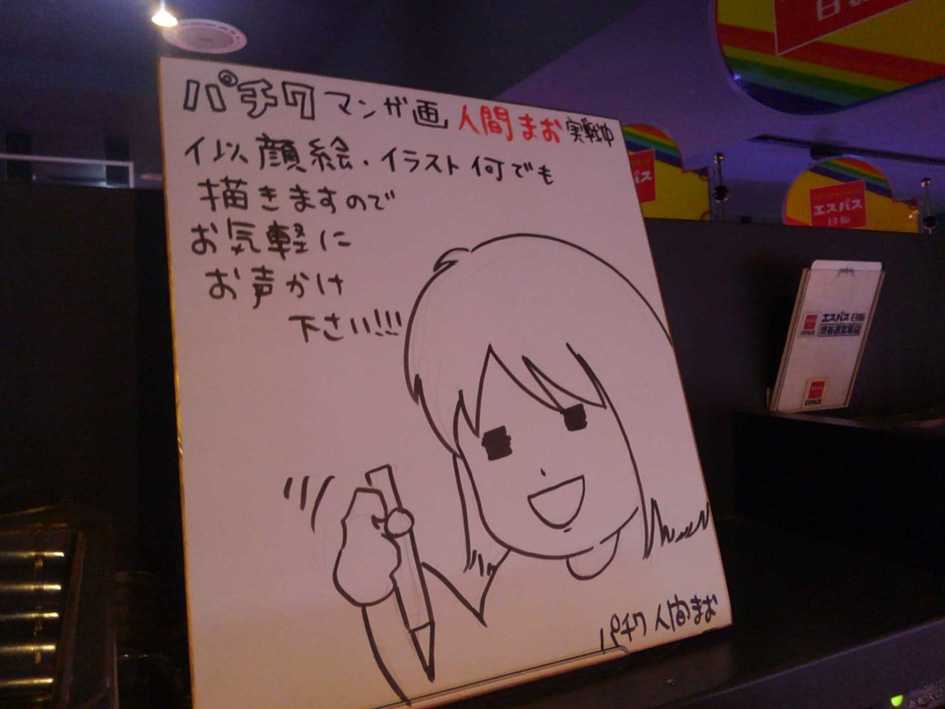 パチ7 マンガ画 人間まお 実戦中
似顔絵・イラスト何でも
描きますので
お気軽に
お声かけ
下さい!!!
パチ7 人間まお
エスパス
エスパス 日拓